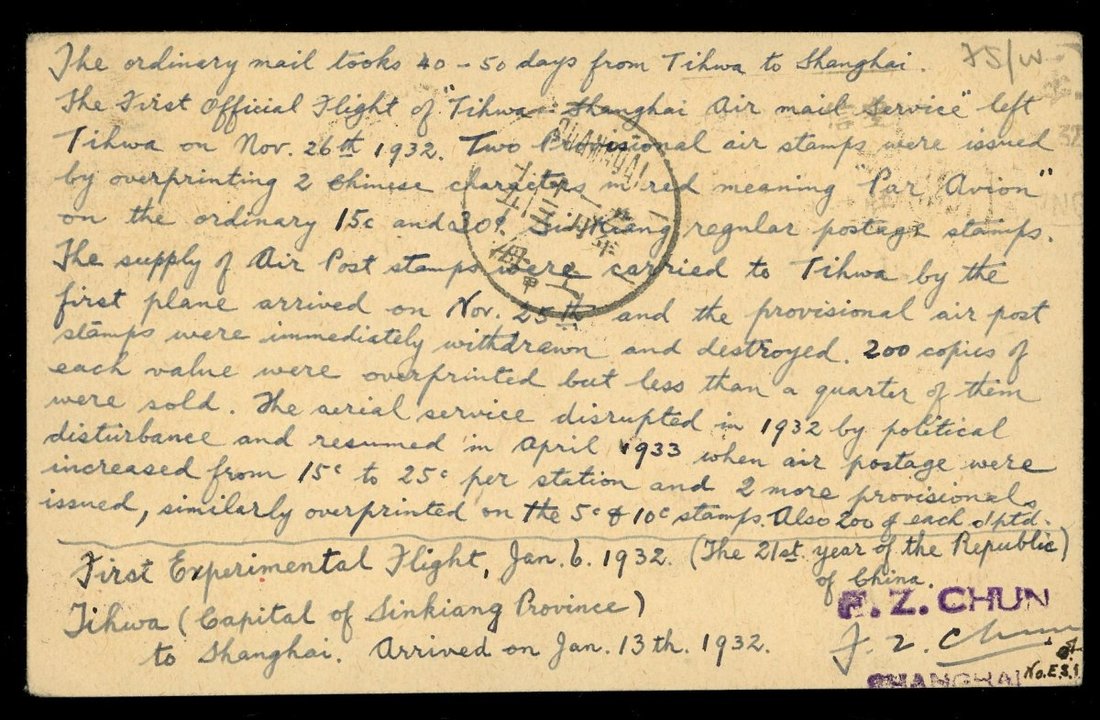 The ordinary mail tooks 40 - 50 days from Tihwa to Shanghai.
The First Official Flight of "Tihwa - Shanghai Air mail Service" left
Tihwa on Nov. 26th 1932. Two Provisional air stamps were issued
by overprinting 2 Chinese characters in red meaning "Par Avion"
on the ordinary 15c and 30c. Sinkiang regular postage stamps.
The supply of Air Post stamps were carried to Tihwa by the
first plane arrived on Nov. 25th and the provisional air post
stamps were immediately withdrawn and destroyed. 200 copies of
each value were overprinted but less than a quarter of them
were sold. The aerial service disrupted in 1932 by political
disturbance and resumed in April 1933 when air postage were
increased from 15c to 25c per station and 2 more provisionals
issued, similarly overprinted on the 5c & 10c stamps. Also 200 of each o'ptd.
First Experimental Flight, Jan. 6. 1932. (The 21st year of the Republic)
of China.
Tihwa (Capital of Sinkiang Province)
to Shanghai. Arrived on Jan. 13th. 1932.
F. Z. CHUN
F. Z. Chun
SHANGHAI
No. E.S.1
SHANGHAI